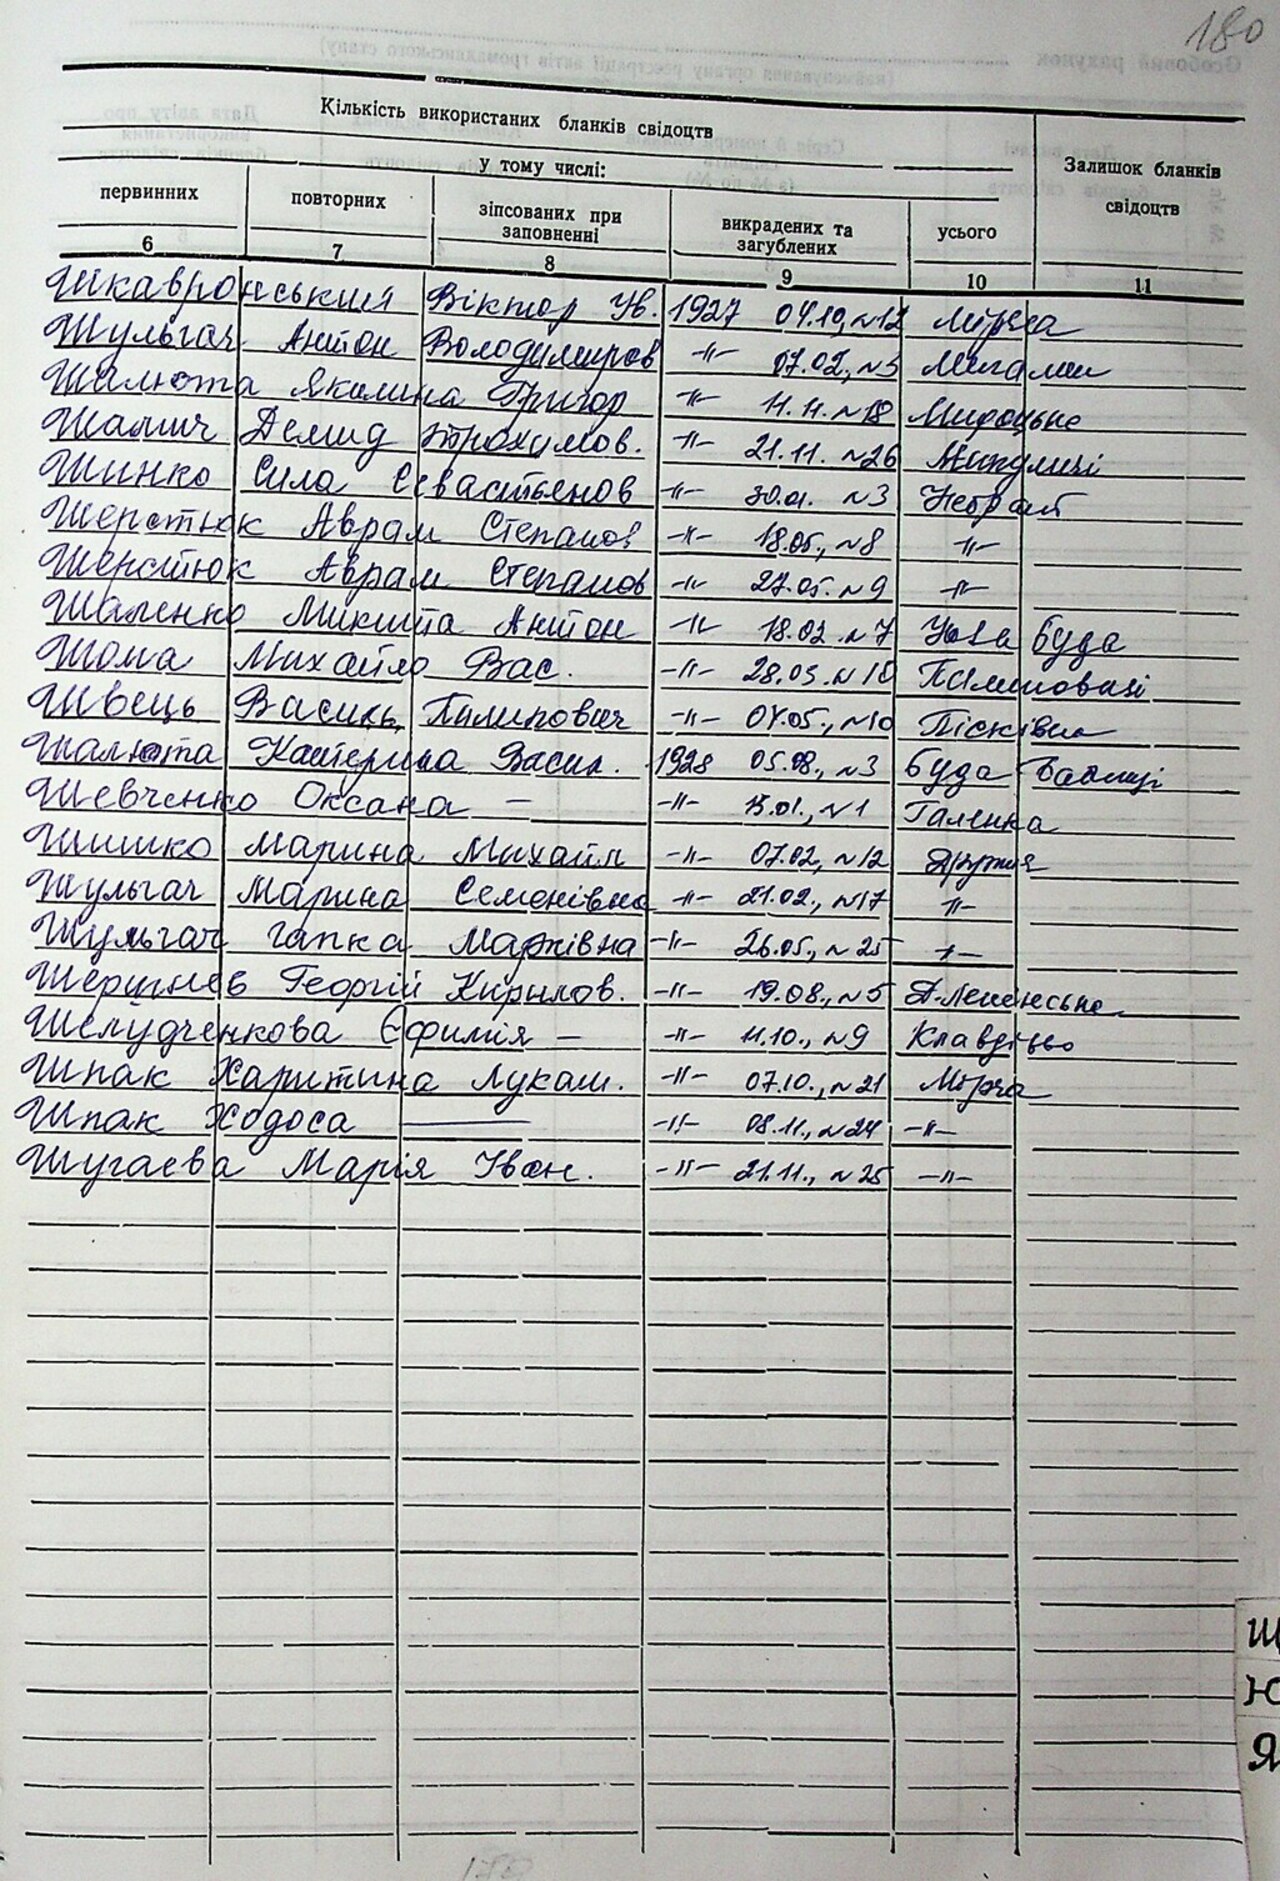 180
Кількість використаних бланків свідоцтв
Залишок бланків свідоцтв
у тому числі:
первинних повторних зіпсованих при заповненні викрадених та загублених усього
6 7 8 9 10 11
Шкавронський Віктор Ув. 1927 04.10, №12 Мірча
Шульгач Антон Володимиров -"- 07.02, №5 Мигалки
Шалюта Якилина Григор -"- 11.11. №18 Мироцьке
Шамич Демид Трохимов. -"- 21.11. №26 Микуличі
Шинко Сила Севастьянов -"- 30.01. №3 Небрат
Шерстюк Аврам Степанов -"- 18.05., №8 -"-
Шерстюк Аврам Степанов -"- 27.05. №9 -"-
Шаленко Микита Антон -"- 18.02. №7 Нова Буда
Шома Михайло Вас. -"- 28.03. №18
Швець Василь Пилипович -"- 04.05., №10 Пісківка
Шалюта Катерина Васил. 1928 05.08., №3 Буда Бабинці
Шевченко Оксана — -"- 15.01., №1 Галинка
Шишко Марина Михайл -"- 07.02, №12 Дружня
Шульгач Марина Семенівна -"- 21.02., №17 -"-
Шульгач Гапка Марківна -"- 26.05., №25 -"-
Георгій Кирилов. -"- 19.08., №5 Д.-Ленінське
Шелудченкова Єфимія — -"- 11.10., №9 Клавдієво
Шпак Харитина Лукаш. -"- 07.10., №21 Мірча
Шпак Ходоса — -"- 08.11., №24 -"-
Шугаєва Марія Іван. -"- 21.11., №25 -"-
Щ
Ю
Я